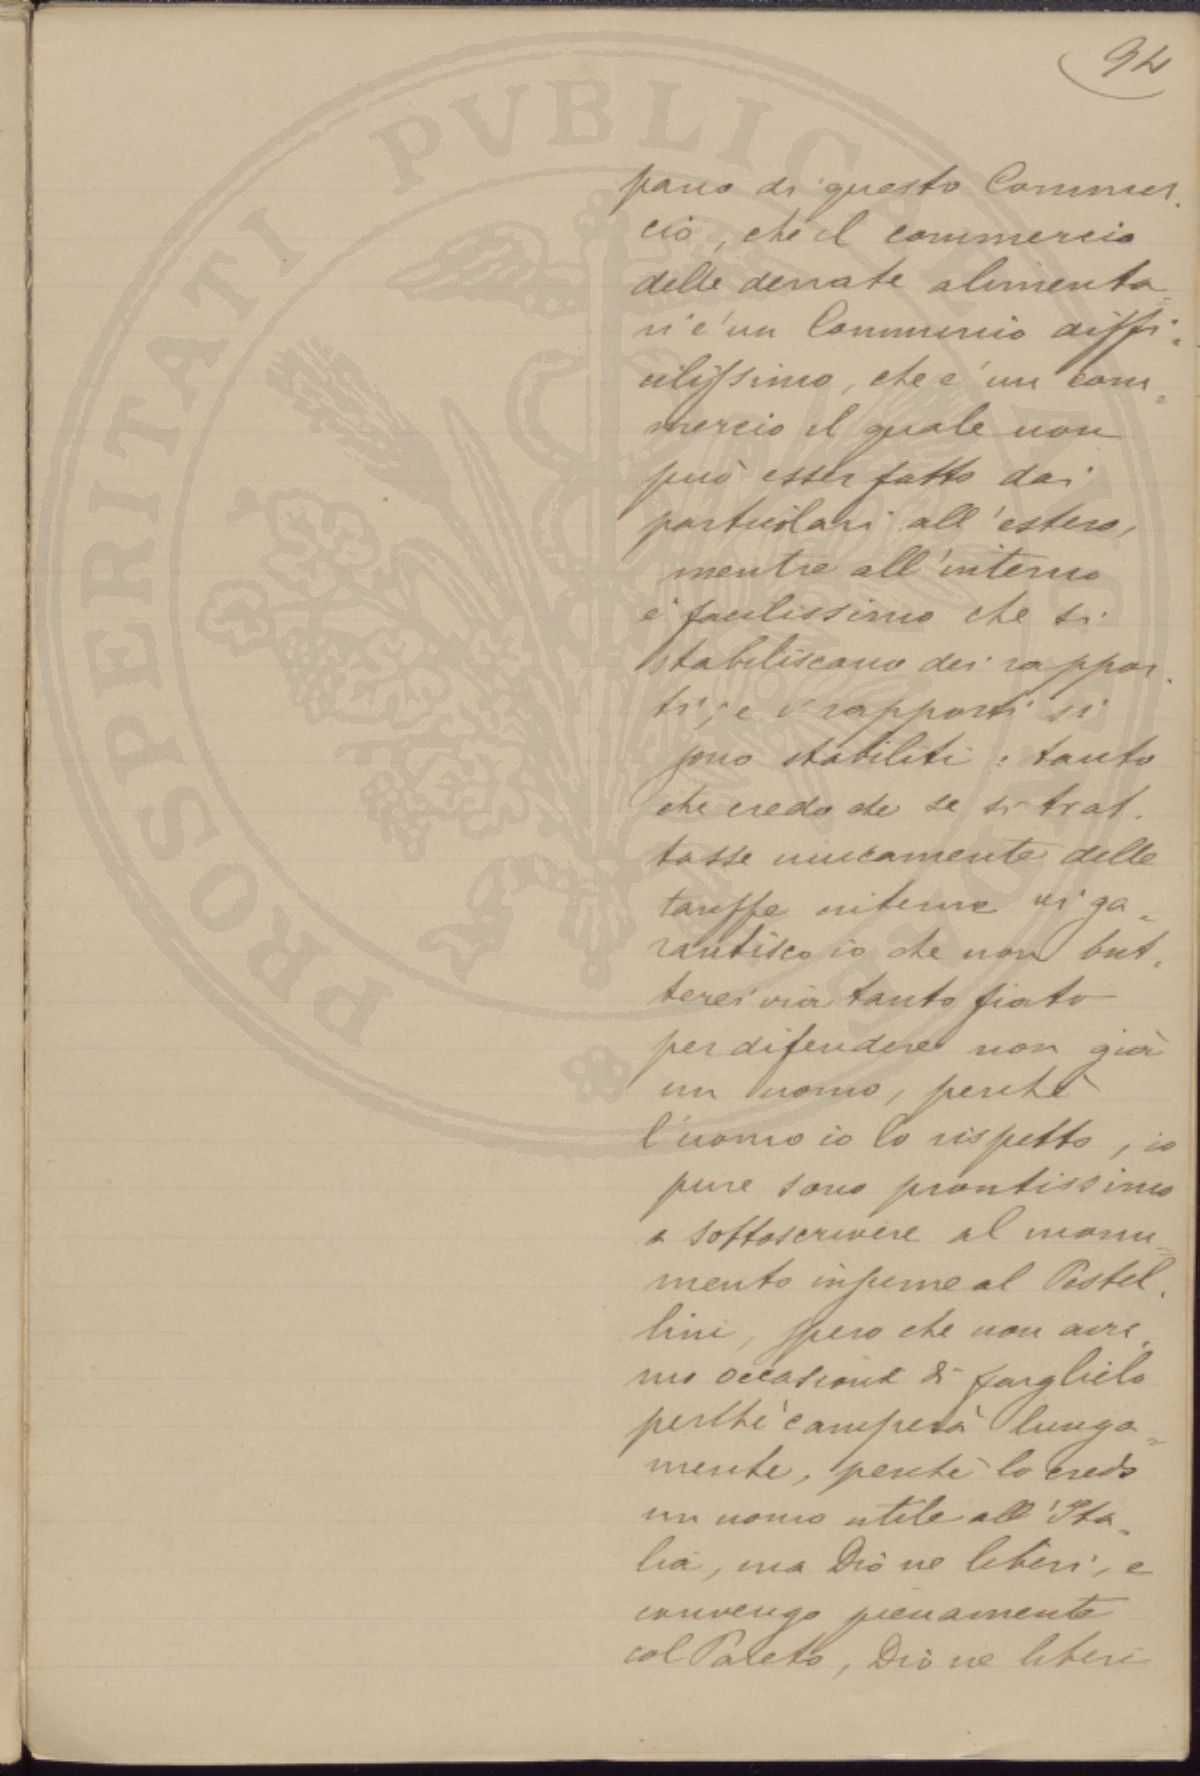 94
pano di questo Commer.
cio, che il commercio
delle derrate alimenta=
ri è un Commercio diffi=
cilissimo, che è un com=
mercio il quale non
può esser fatto dai
particolari all'estero,
mentre all'interno
è facilissimo che si
stabiliscano dei rappor.
ti, e i rapporti si
sono stabiliti: tanto
che credo che se si trat.
tasse unicamente delle
tariffe interne vi ga=
rantisco io che non but.
terei via tanto fiato
per difendere non già
un uomo, perchè
l'uomo io lo rispetto, io
pure sono prontissimo
a sottoscrivere al monu=
mento insieme al Pastel.
lini, spero che non avre.
mo occasione di farglielo
perchè camperà lunga=
mente, perchè lo credo
un uomo utile all'Ita=
lia, ma Dio ne liberi, e
convengo pienamente
col Pareto, Dio ne liberi
PROSPERITATI PVBLICAE